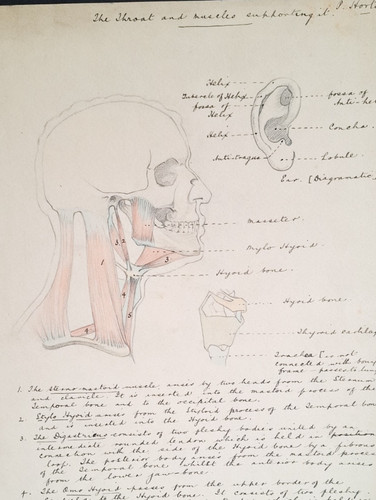 The Throat and muscles supporting it.
Helix
Tubercle of Helix
fossa of
Helix
Helix
Anti-tragus
fossa of
Anti-he
Concha
Lobule.
Ear. (Diagramatic
masseter.
Mylo Hyoid.
Hyoid bone.
Hyoid bone.
Thyroid
is not
connected with bony
1
2
3
3
4
4
5
1. The Sterno-mastoid muscle, arises by two heads from the Sternum
and clavicle. It is inserted into the mastoid process of the
Temporal bone and to the occipital bone.
2. Stylo Hyoid arises from the Styloid process of the Temporal bone
and is inserted into the Hyoid bone.
3. The Digastricus consists of two fleshy bodies united by an
intermediate rounded tendon which is held in position in
connection with the side of the Hyoid bone by a fibrous
loop. The posterior body arises from the mastoid process
of the Temporal bone whilst the anterior body arises
from the lower jaw-bone.
4. The Omo Hyoid arises from the upper border of the
the Hyoid bone. It consists of two fleshy